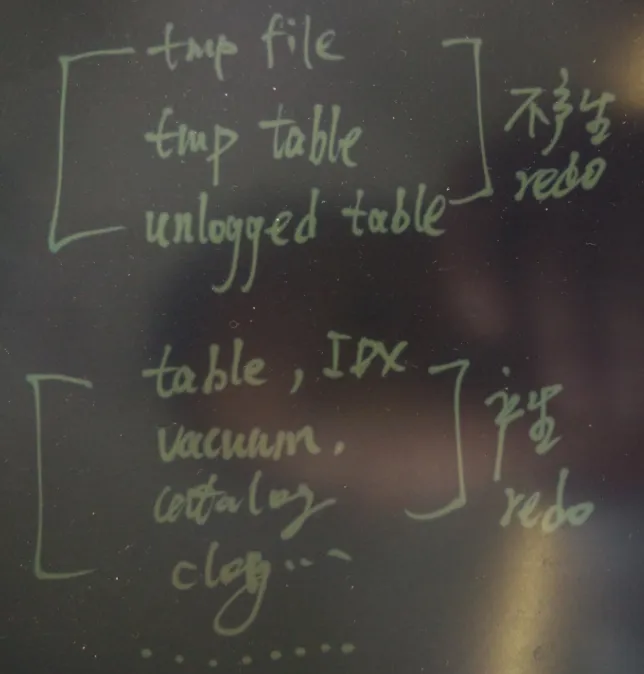 tmp file
tmp table
unlogged table
不产生
redo
table, IDX
vacuum.
catalog
clog...
产生
redo
.........